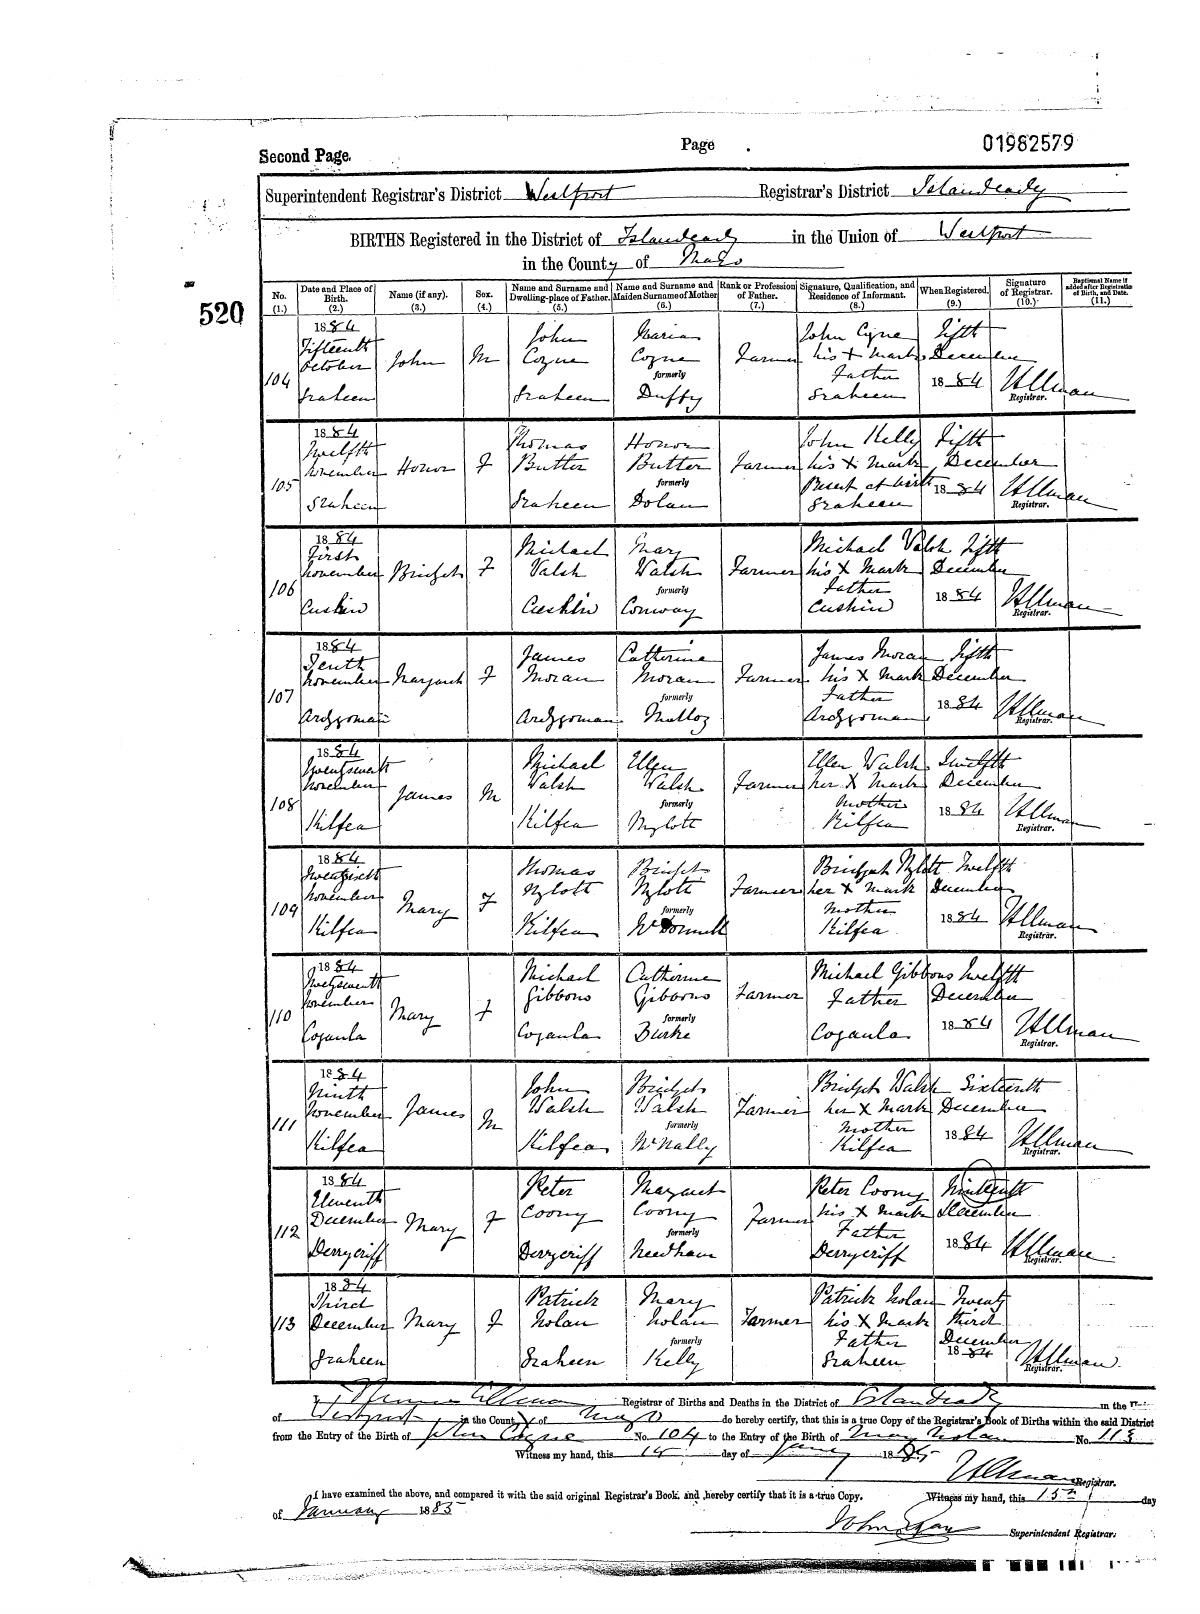 Page .
01982579
Second Page.
Superintendent Registrar's District Westport Registrar's District Islandeady
BIRTHS Registered in the District of Islandeady in the Union of Westport
in the County of Mayo
520
No. (1.) Date and Place of Birth. (2.) Name (if any). (3.) Sex. (4.) Name and Surname and Dwelling-place of Father. (5.) Name and Surname and Maiden Surname of Mother (6.) Rank or Profession of Father. (7.) Signature, Qualification, and Residence of Informant. (8.) When Registered. (9.) Signature of Registrar. (10.) Baptismal Name if added after Registration of Birth, and Date. (11.)
1884 John Maria John Cyne Fifth
Fifteenth October John M Coyne Coyne Farmer his X Mark December
104 formerly Father 1884 Ullman
Graheen Graheen Duffy Graheen Registrar.
1884 Thomas Honor John Kelly Fifth
Twelfth November Honor F Butter Butter Farmer his X Mark December
105 formerly Present at birth 1884 Ullman
Graheen Graheen Dolan Graheen Registrar.
1884 Michael Mary Michael Walsh Fifth
First November Bridget F Walsh Walsh Farmer his X Mark December
106 formerly Father 1884 Ullman
Cushin Cushin Conway Cushin Registrar.
1884 James Catherine James Moran Fifth
Tenth November Margaret F Moran Moran Farmer his X Mark December
107 formerly Father 1884 Ullman
Ardygoman Ardygoman Malloy Ardygoman Registrar.
1884 Michael Ellen Ellen Walsh Twelfth
November James M Walsh Walsh Farmer her X Mark December
108 formerly Mother 1884 Ullman
Kilfea Kilfea Mylott Kilfea Registrar.
1884 Thomas Bridget Bridget Mylott Twelfth
November Mary F Mylott Mylott Farmer her X Mark December
109 formerly Mother 1884 Ullman
Kilfea Kilfea McDonnell Kilfea Registrar.
1884 Michael Catherine Michael Gibbons Twelfth
November Mary F Gibbons Gibbons Farmer Father December
110 formerly 1884 Ullman
Cogaula Cogaula Burke Cogaula Registrar.
1884 John Bridget Bridget Walsh Sixteenth
Ninth November James M Walsh Walsh Farmer her X Mark December
111 formerly Mother 1884 Ullman
Kilfea Kilfea McNally Kilfea Registrar.
1884 Peter Margaret Peter Coony Ninteenth
Eleventh December Mary F Coony Coony Farmer his X Mark December
112 formerly Father 1884 Ullman
Derrycriff Derrycriff Needham Derrycriff Registrar.
1884 Patrick Mary Patrick Nolan Twenty
Third December Mary F Nolan Nolan Farmer his X Mark third
113 formerly Father December 1884 Ullman
Graheen Graheen Kelly Graheen Registrar.
I, Ullman Registrar of Births and Deaths in the District of Islandeady in the
of Westport, in the County of Mayo do hereby certify, that this is a true Copy of the Registrar's Book of Births within the said District
from the Entry of the Birth of John Coyne No. 104 to the Entry of the Birth of Mary Nolan No. 113
Witness my hand, this 15 day of Jany 1885
Ullman Registrar.
I have examined the above, and compared it with the said original Registrar's Book, and hereby certify that it is a true Copy. Witness my hand, this 15th day
of January 1885
John Superintendent Registrar.